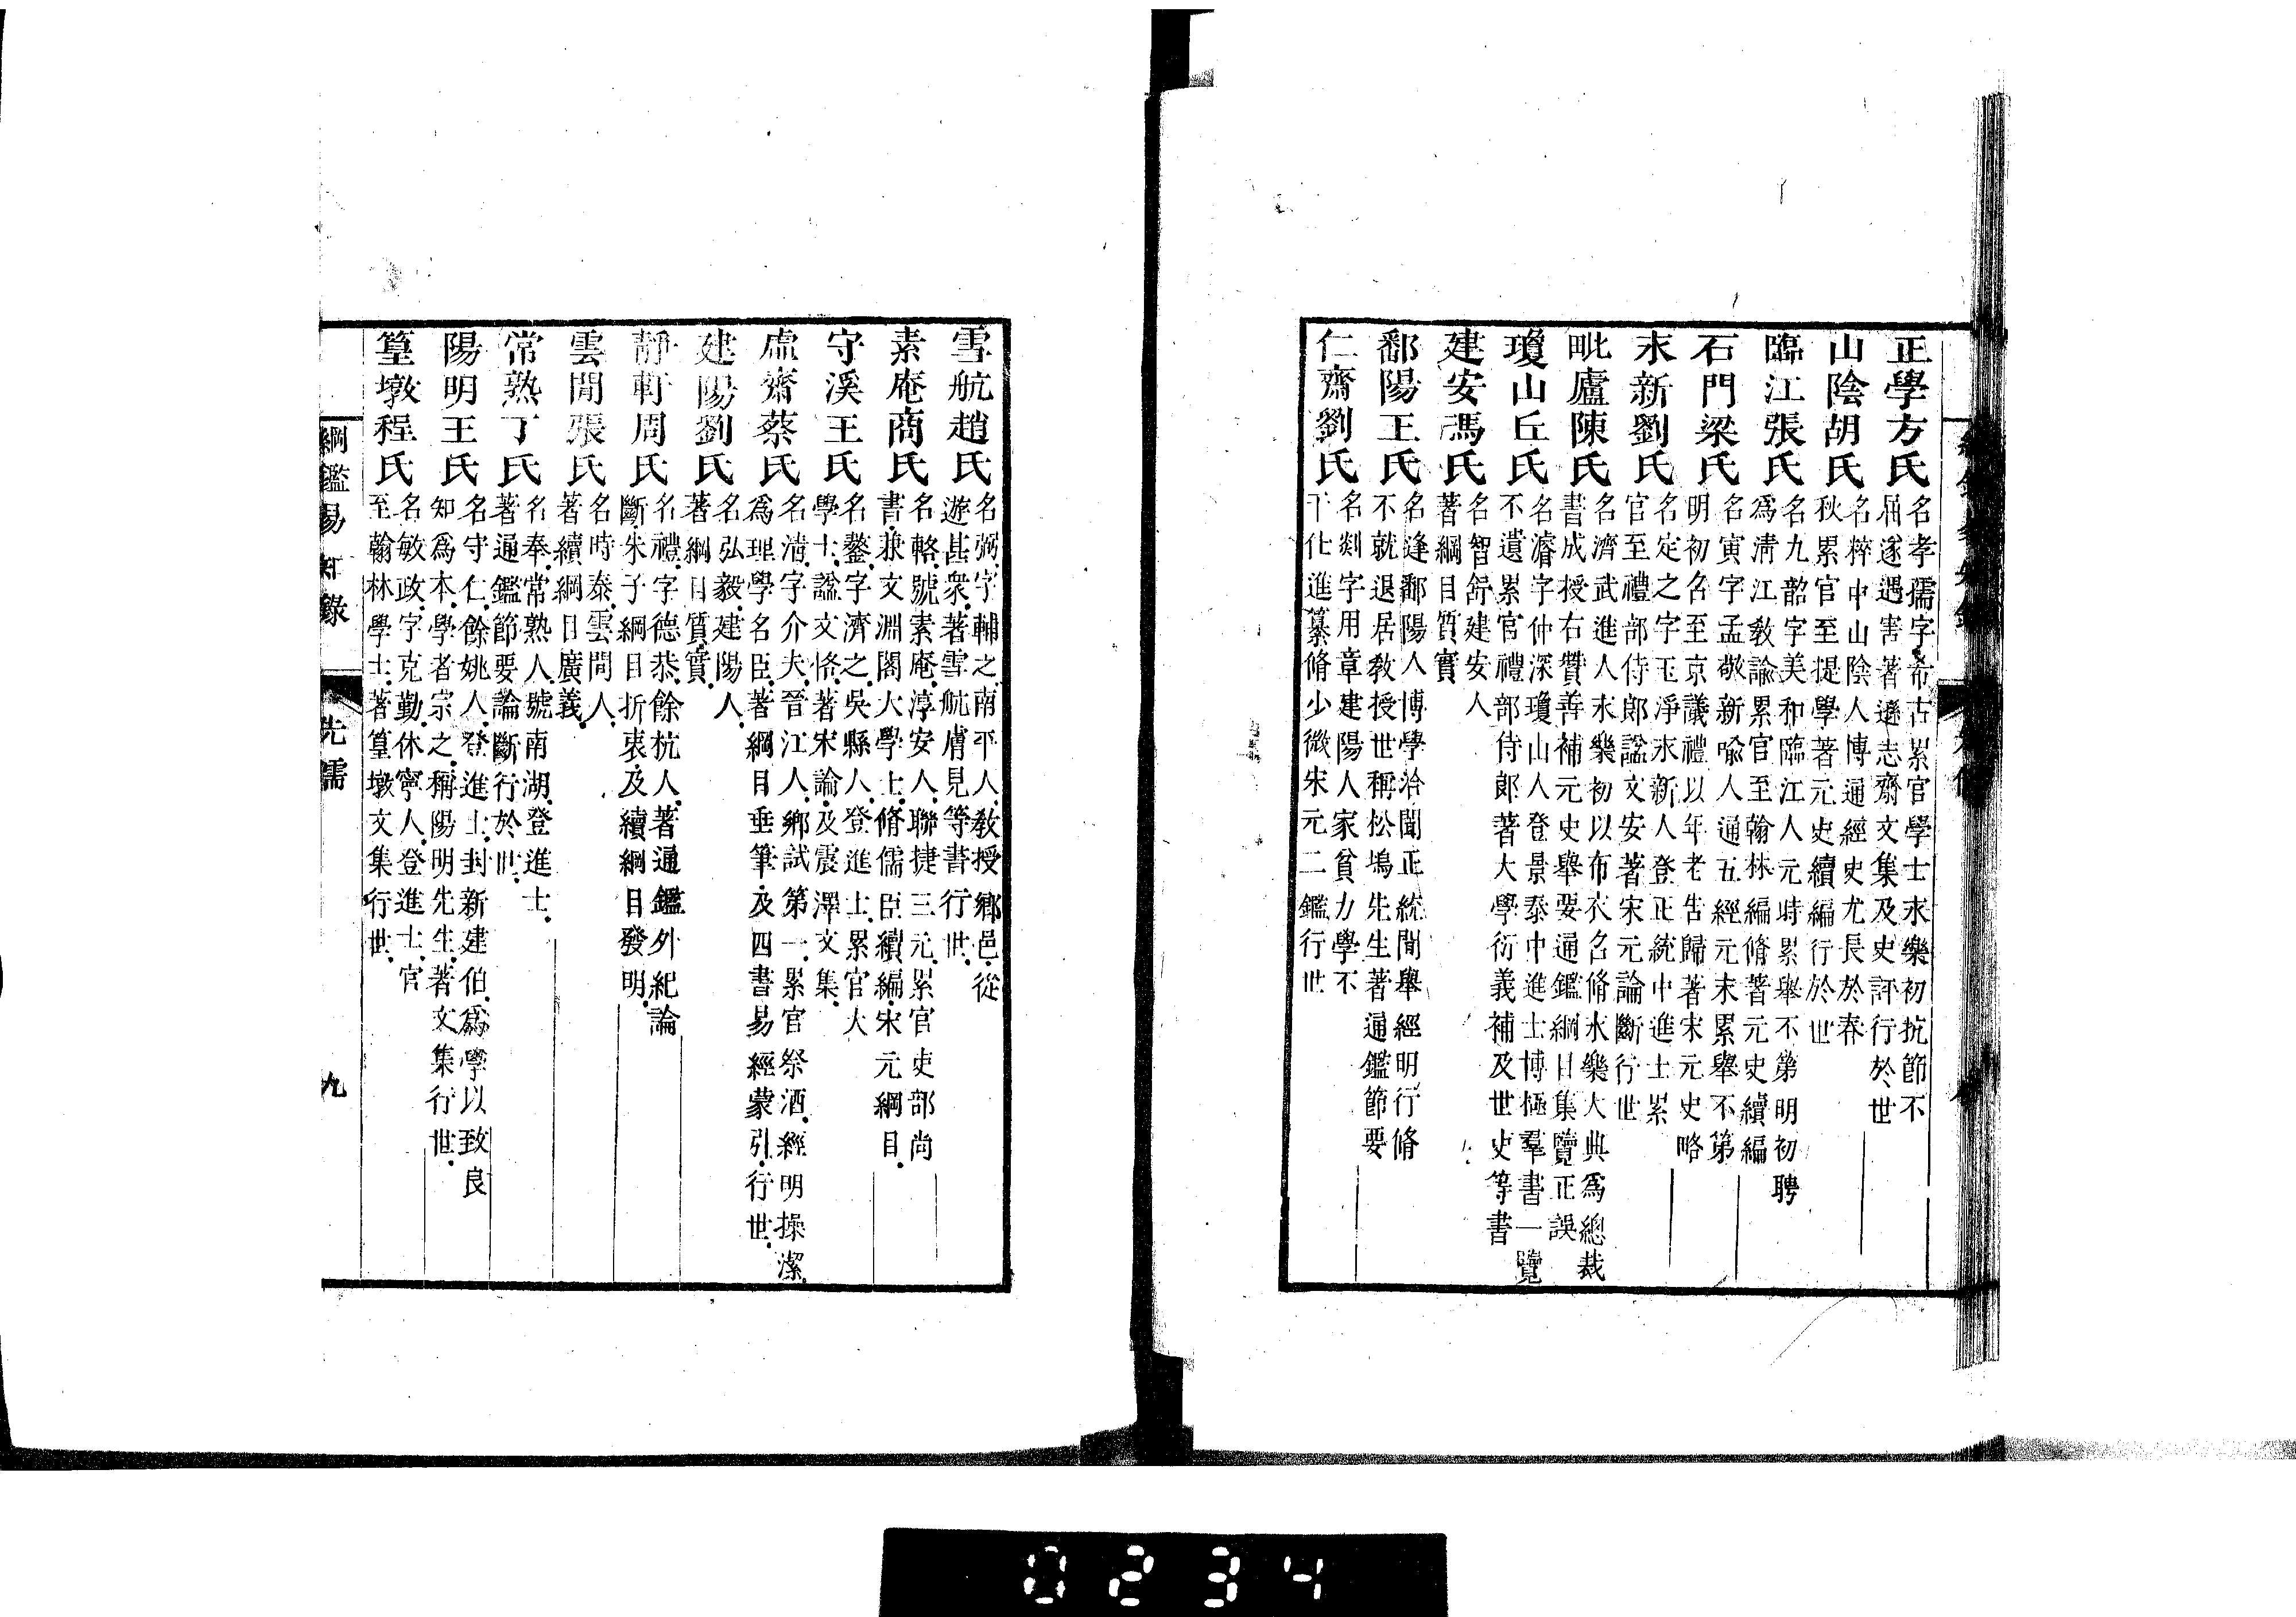 正學方氏
名孝孺字希古累官學士永樂初抗節不
屈遂遇害著遜志齋文集及史評行於世
山陰胡氏
名粹中山陰人博通經史尤長於春
秋累官至提學著元史續編行於世
臨江張氏
名九韶字美和臨江人元時累舉不第明初聘
爲淸江敎諭累官至翰林編脩著元史續編
石門梁氏
名寅字孟敬新喩人通五經元末累舉不第
明初名至京議禮以年老告歸著宋元史略
永新劉氏
名定之字主淨永新人登正統中進士累
官至禮部侍郎諡文安著宋元論斷行世
毗廬陳氏
名濟武進人永樂初以布衣名脩永樂大典爲總裁
書成授右贊善補元史舉要通鑑綱目集覽正誤
瓊山丘氏
名濬字仲深瓊山人登景泰中進士博極羣書一覽
不遺累官禮部侍郎著大學衍義補及世史等書
建安馮氏
名智舒建安人
著綱目質實
鄱陽王氏
名逢鄱陽人博學洽聞正統間舉經明行脩
不就退居敎授世稱松塢先生著通鑑節要
仁齋劉氏
名剡字用章建陽人家貧力學不
干仕進纂脩少微宋元二鑑行世
雪航趙氏
名弼字輔之南平人敎授鄉邑從
遊甚衆著雪航膚見等書行世
素庵商氏
名輅號素庵淳安人聯捷三元累官吏部尚
書兼文淵閣大學士脩儒臣續編宋元綱目
守溪王氏
名鏊字濟之吳縣人登進士累官大
學士諡文恪著宋論及震澤文集
虛齋蔡氏
名淸字介夫晉江人鄉試第一累官祭酒經明操潔
爲理學名臣著綱目垂筆及四書易經蒙引行世
建陽劉氏
名弘毅建陽人
著綱目質實
靜軒周氏
名禮字德恭餘杭人著通鑑外紀論
斷朱子綱目折衷及續綱目發明
雲間張氏
名時泰雲間人
著續綱目廣義
常熟丁氏
名奉常熟人號南湖登進士
著通鑑節要論斷行於世
陽明王氏
名守仁餘姚人登進士封新建伯爲學以致良
知爲本學者宗之稱陽明先生著文集行世
篁墩程氏
名敏政字克勤休寧人登進士官
至翰林學士著篁墩文集行世
綱鑑易知錄 先儒 九
0234